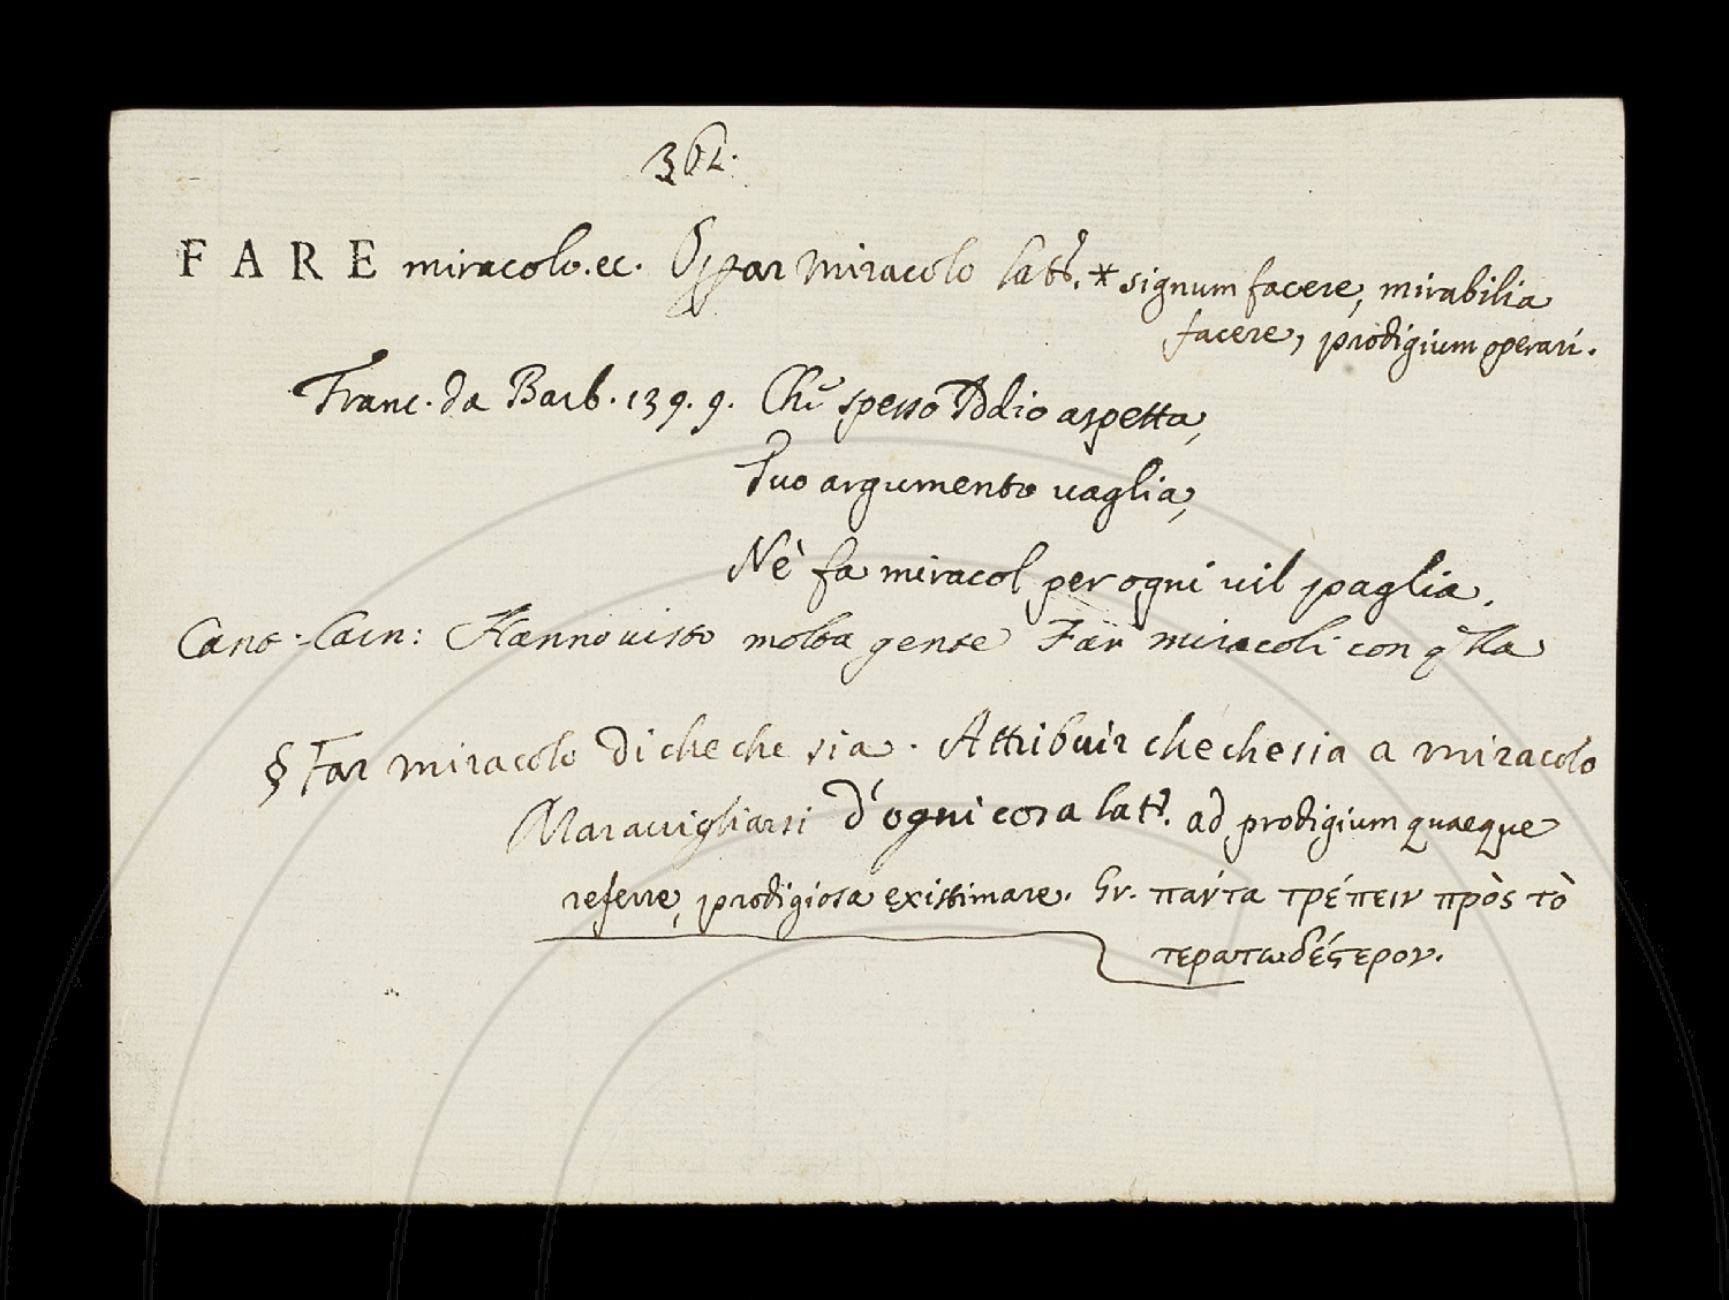 362.
FARE miracolo.ec. Oprar miracolo latt. * signum facere, mirabilia
facere, prodigium operari.
Franc. da Barb. 139. 9. Chi spesso Iddio aspetta,
Suo argumento vaglia,
Nè fa miracol per ogni vil paglia.
Cant. Carn: Hanno visto molta gente Far miracoli con qlla
§ Far miracolo di che che sia. Attribuir che che sia a miracolo
Maravigliarsi d'ogni cosa latt. ad prodigium quaeque
referre, prodigiosa existimare. Gr. πάντα τρέπειν πρὸς τὸ
τερατωδέςερον.